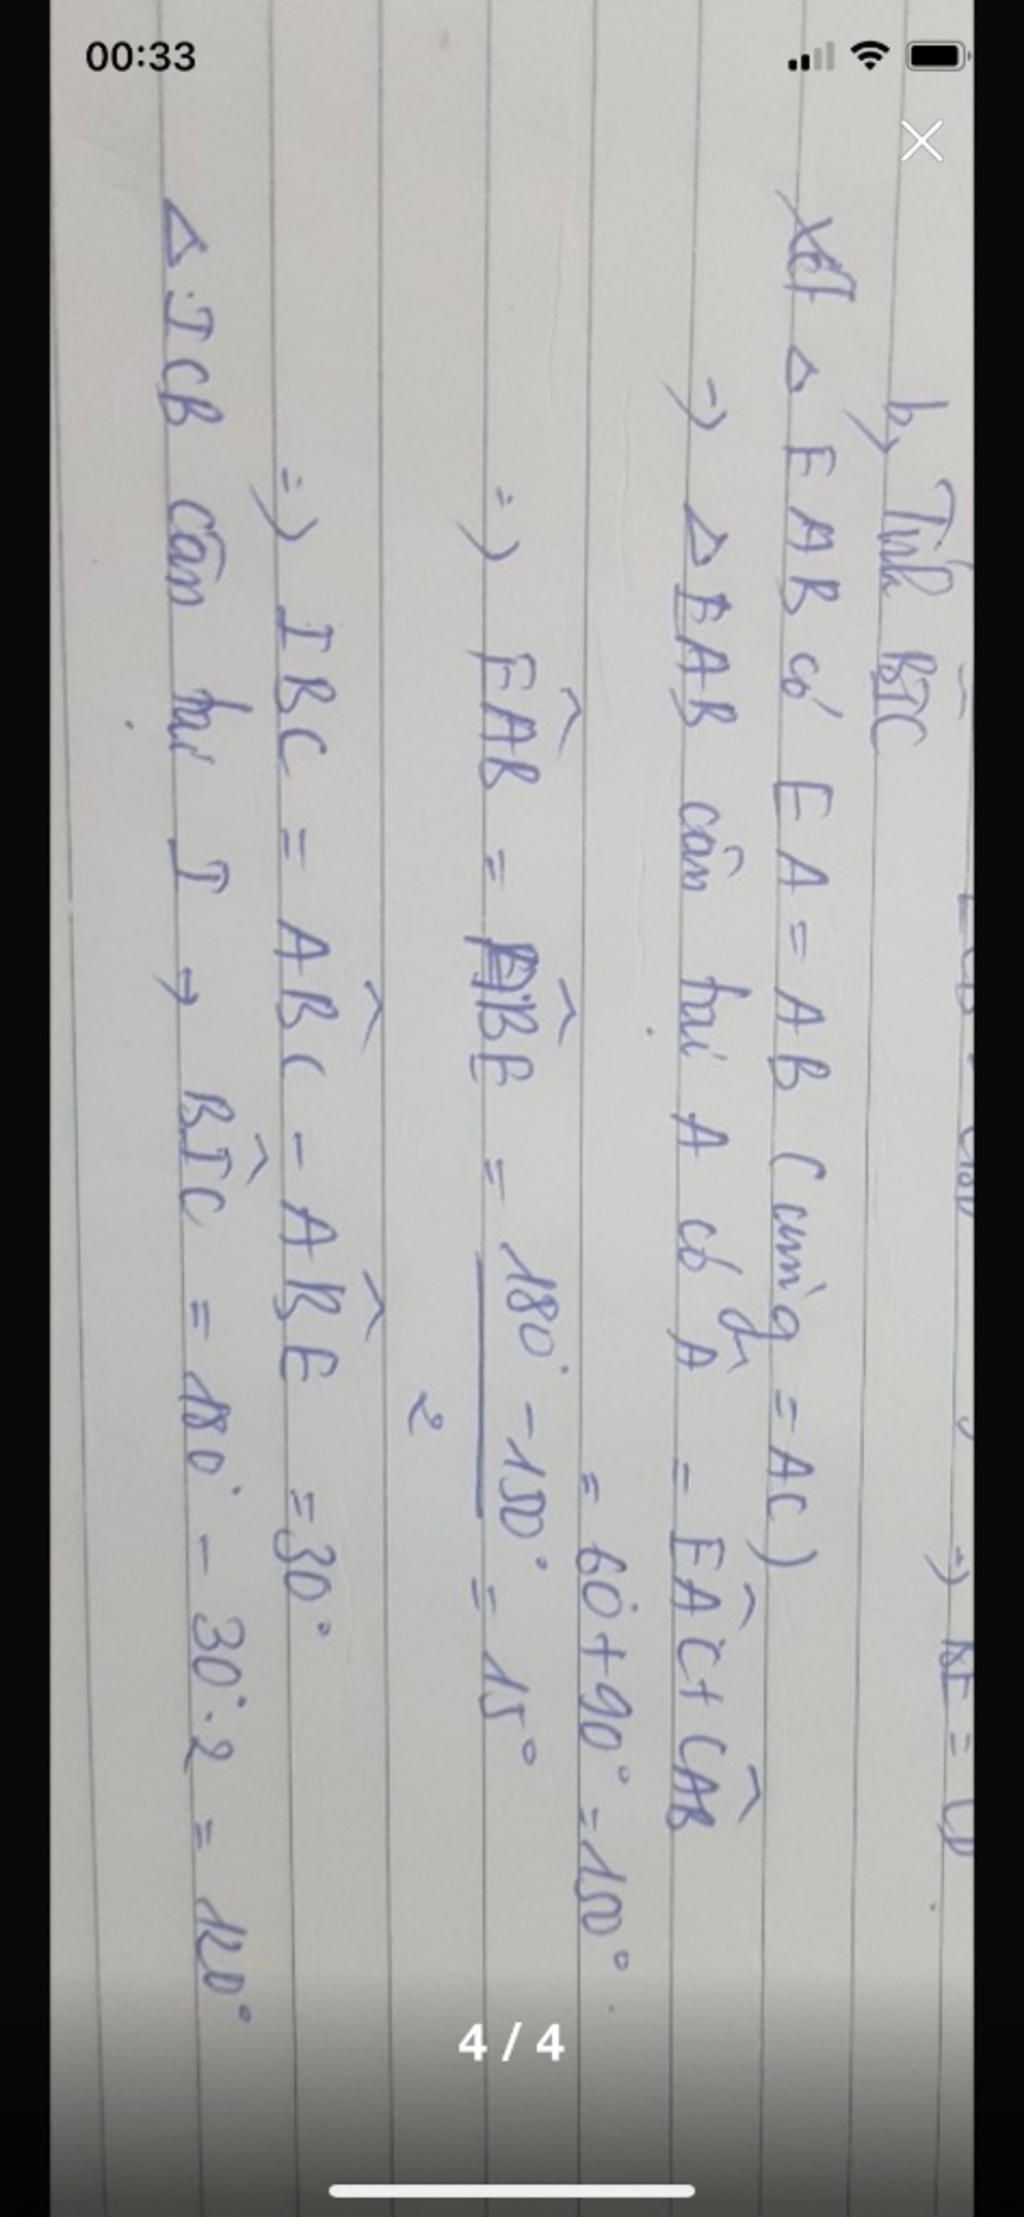 00:33
b, Tính BIC
Xét Δ EAB có EA = AB (cùng = AC)
=> Δ EAB cân tại A có Â = EÂC + CÂB
= 60° + 90° = 150°
=> EÂB = AB̂E = 180° - 150° / 2 = 15°
=> IBC = AB̂C - AB̂E = 30°
Δ ICB cân tại I → BÎC = 180° - 30°.2 = 120°
4 / 4